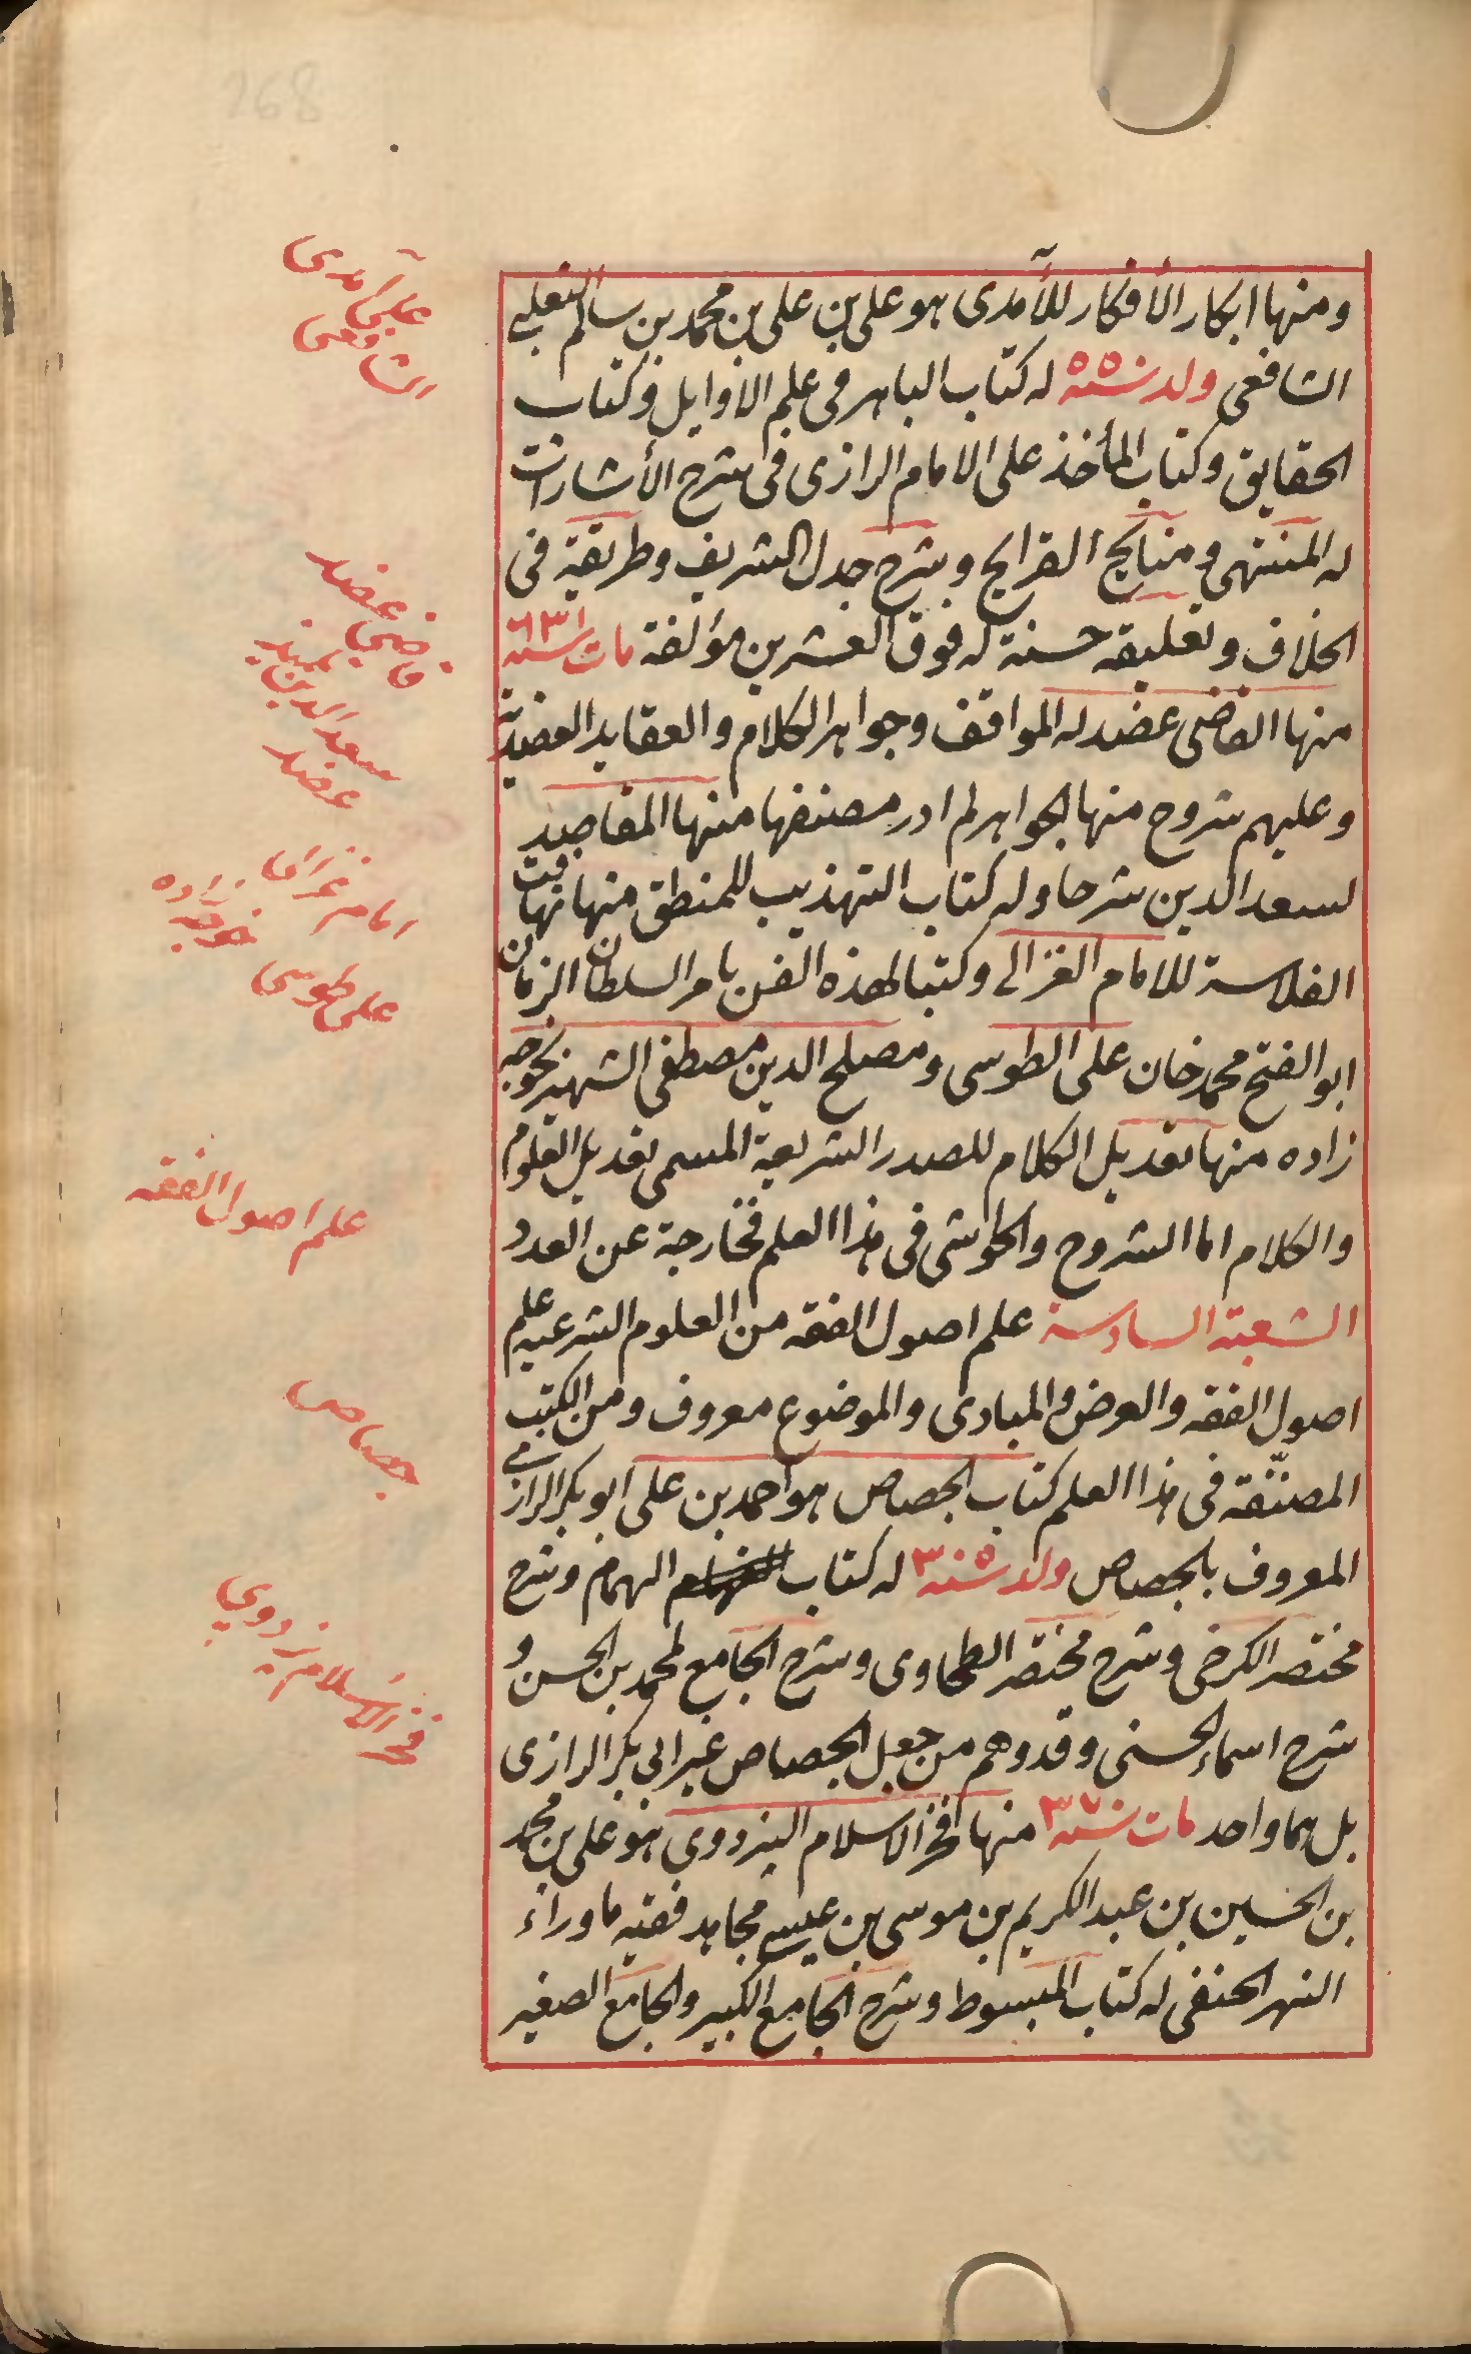 ومنها ابكار الأفكار للآمدى هو على بن على بن محمد بن سالم التغلبى
الشافعى ولد سنة ٥٥ له كتاب الباهر فى علم الاوايل وكتاب
الحقايق وكتاب المأخذ على الامام الرازى فى شرح الأشارات
له المنتهى و منايح القرايح وشرح جدل الشريف وطريقة فى
الخلاف وتعليقه حسنة له فوق العشرين مؤلفة مات سنة ٦٣١
منها القاضى عضد له المواقف وجواهر الكلام والعقايد العضدية
وعليهم شروح منها الجواهر لم ادر مصنفها منها المقاصد
لسعد الدين شرحا وله كتاب التهذيب للمنطق منها تهافت
الفلاسة للامام الغزالى وكتبا لهذه الفن بامر السلطان الزمان
ابو الفتح محمد خان على الطوسى ومصلح الدين مصطفى الشهير بخوجه
زاده منها تعديل الكلام للصدر الشريعة المسمى تعديل العلوم
والكلام اما الشروح والحواشى فى هذا العلم فخارجة عن العدد
الشعبة السادسة علم اصول الفقه من العلوم الشرعيه علم
اصول الفقه والعرض والمبادى والموضوع معروف ومن الكتب
المصنّفة فى هذا العلم كتاب الجصاص هو احمد بن على ابو بكر الرازى
المعروف بالجصاص ولد سنة ٣٠٥ له كتاب الهمام وشرح
مختصر الكرخى وشرح مختصر الطحاوى وشرح الجامع لمحمد بن الحسن و
شرح اسماء الحسنى وقد وهم من جعل الجصاص غير ابى بكر الرازى
بل هما واحد مات سنة ٣٧٠ منها فخر الاسلام البزدوى هو على بن محمد
بن الحسين بن عبد الكريم بن موسى بن عيسى مجاهد فقيه ماوراء
النهر الحنفى له كتاب المبسوط وشرح الجامع الكبير والجامع الصغير
على آمدى
الشافعى
قاضى عضد
سعد الدين تلميذ
عضد
امام غزالى
خوجه زاده
على طوسى
علم اصول الفقه
جصاص
فخر الاسلام بزدوي
268